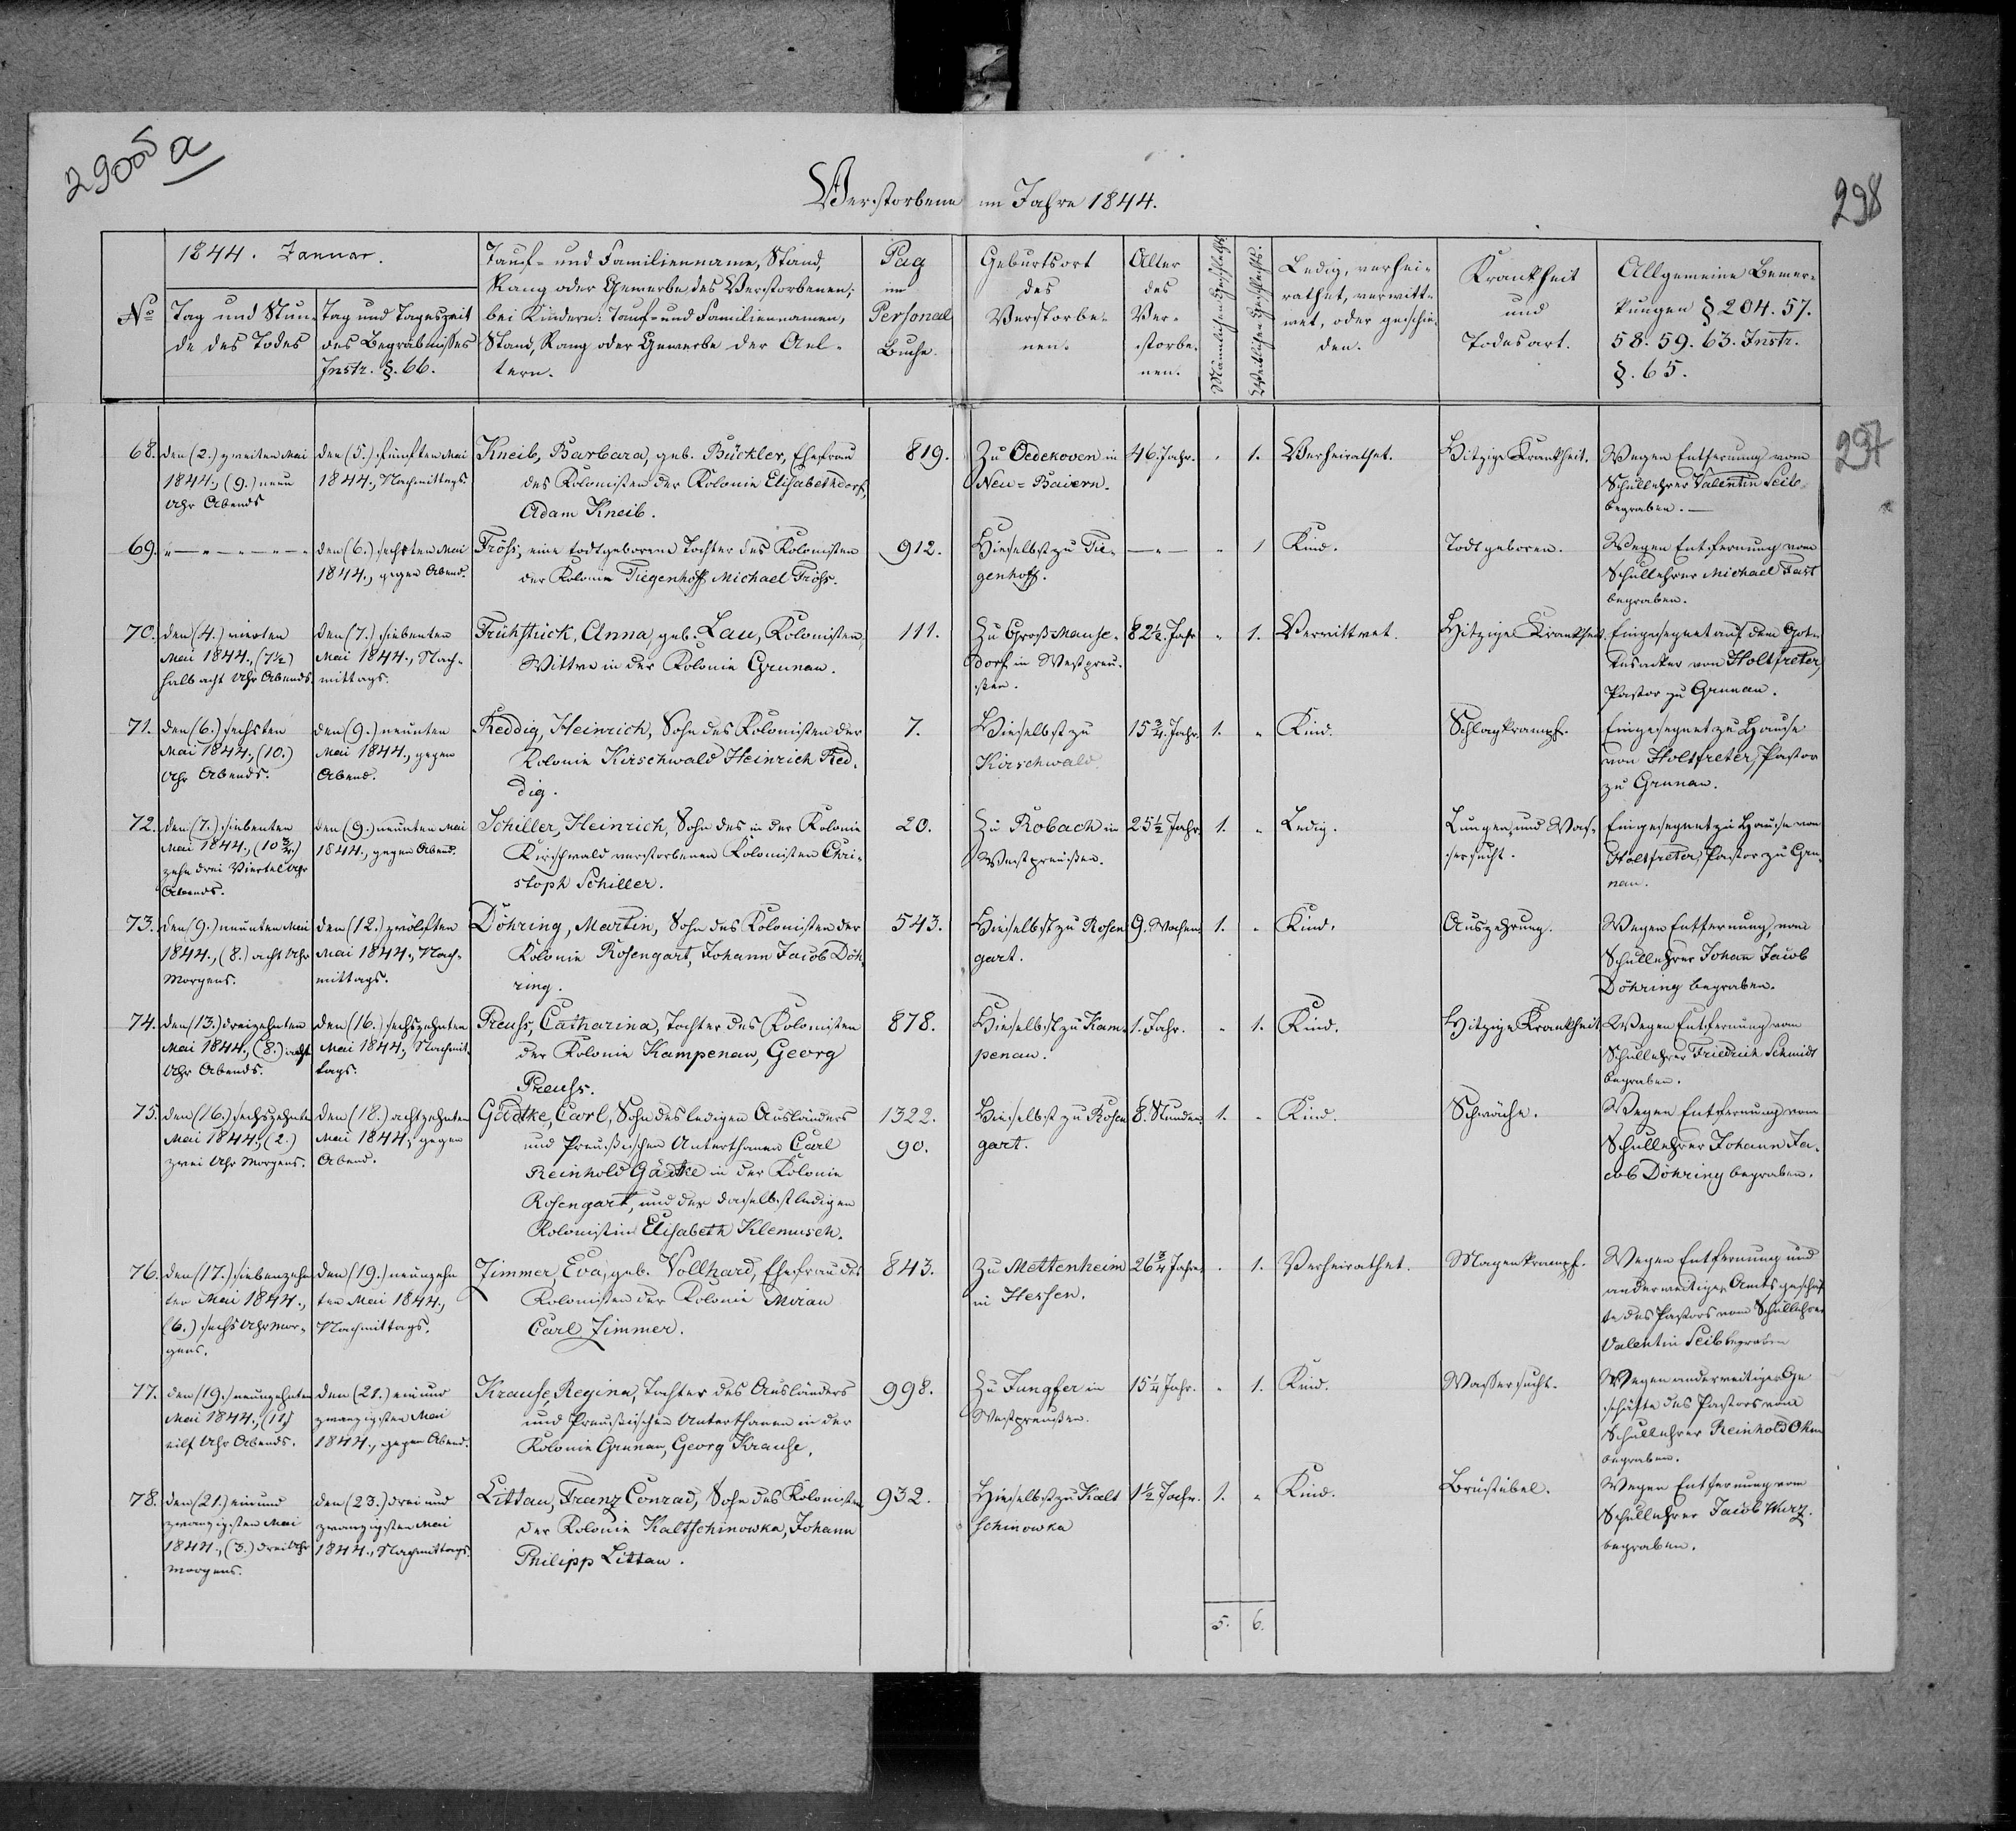 29005 a
298
Verstorbene im Jahre 1844.
1844. Januar.
No
Tag und Stun-
de des Todes
Tag und Tageszeit
des Begräbnißes
Instr. §. 66.
Tauf- und Familienname, Stand,
Rang oder Gewerbe des Verstorbenen;
bei Kindern: Tauf- und Familiennamen,
Stand, Rang oder Gewerbe der Ael-
tern.
Pag
im
Personal
Buche.
Geburtsort
des
Verstorbe-
nen.
Alter
des
Ver-
storbe-
nen.
Männlichen Geschlechts
Weiblichen Geschlechts.
Ledig, verhei-
rathet, verwitt-
wet, oder geschie-
den.
Krankheit
und
Todesart.
Allgemeine Bemer-
kungen § 204. 57.
58. 59. 63. Instr.
§. 65.
297
68.
den (2.) zweiten Mai
1844., (9.) neun
Uhr Abends
den (5.) fünften Mai
1844., Nachmittags.
Kneib, Barbara, geb. Bückler, Ehefrau
des Kolonisten der Kolonie Elisabethdorf,
Adam Kneib.
819.
Zu Oedekoven in
Neu-Baiern.
46. Jahr.
"
1.
Verheirathet.
Hitzige Krankheit.
Wegen Entfernung vom
Schullehrer Valentin Seib
begraben. —
69.
" — " — " — " — "
den (6.) sechsten Mai
1844., gegen Abend.
Fröhs, eine todtgeborene Tochter des Kolonisten
der Kolonie Tiegenhoff Michael Fröhs.
912.
Hieselbst zu Tie-
genhoff.
— " —
"
1
Kind.
Todtgeboren.
Wegen Entfernung vom
Schullehrer Michael Fast
begraben.
70.
den (4.) vierten
Mai 1844., (7½)
halb acht Uhr Abends.
den (7.) siebenten
Mai 1844., Nach-
mittags.
Frühstück, Anna, geb. Lau, Kolonisten
Wittwe in der Kolonie Grunau.
111.
Zu Groß Mause-
dorf in Westpreu-
ßen.
82½. Jahr
"
1.
Verwittwet.
Hitzige Krankheit
Eingesegnet auf dem Got-
tesacker von Holtfreter,
Pastor zu Grunau.
71.
den (6.) sechsten
Mai 1844., (10.)
Uhr Abends.
den (9.) neunten
Mai 1844., gegen
Abend.
Reddig, Heinrich, Sohn des Kolonisten der
Kolonie Kirschwald Heinrich Red-
dig.
7.
Hieselbst zu
Kirschwald.
15¾. Jahr.
1.
"
Kind.
Schlagkrampf.
Eingesegnet zu Hause
von Holtfreter, Pastor
zu Grunau.
72.
den (7.) siebenten
Mai 1844., (10¾)
zehn drei Viertel Uhr
Abends.
den (9.) neunten Mai
1844., gegen Abend.
Schiller, Heinrich, Sohn des in der Kolonie
Kirschwald verstorbenen Kolonisten Chri-
stoph Schiller.
20.
Zu Robach in
Westpreußen.
25½ Jahr
1.
"
Ledig.
Lungen- und Was-
sersucht.
Eingesegnet zu Hause von
Holtfreter, Pastor zu Gru-
nau.
73.
den (9.) neunten Mai
1844., (8.) acht Uhr
Morgens.
den (12.) zwölften
Mai 1844., Nach-
mittags.
Döhring, Martin, Sohn des Kolonisten der
Kolonie Rosengart, Johann Jacob Döh-
ring.
543.
Hieselbst zu Rosen
gart.
9. Wochen
1.
"
Kind.
Auszehrung.
Wegen Entfernung vom
Schullehrer Johan Jacob
Döhring begraben.
74.
den (13.) dreizehnten
Mai 1844., (8.) acht
Uhr Abends.
den (16.) sechszehnten
Mai 1844., Nachmit-
tags.
Preuhs, Catharina, Tochter des Kolonisten
der Kolonie Kampenau, Georg
Preuhs.
878.
Hieselbst zu Kam-
penau.
1. Jahr.
"
1.
Kind.
Hitzige Krankheit
Wegen Entfernung vom
Schullehrer Friedrich Schmidt
begraben.
75.
den (16.) sechszehnten
Mai 1844., (2.)
zwei Uhr Morgens.
den (18.) achtzehnten
Mai 1844., gegen
Abend.
Gädtke, Carl, Sohn des ledigen Ausländers
und Preußischen Unterthanen Carl
Reinhold Gädtke in der Kolonie
Rosengart, und der daselbst ledigen
Kolonistin Elisabeth Klemusch.
1322.
90.
Hieselbst zu Rosen
gart.
8. Stunden
1.
"
Kind.
Schwäche.
Wegen Entfernung vom
Schullehrer Johann Ja-
cob Döhring begraben.
76.
den (17.) siebenzehn-
ten Mai 1844.,
(6.) sechs Uhr Mor-
gens.
den (19.) neunzehn
ten Mai 1844.,
Nachmittags.
Zimmer, Eva, geb. Vollhard, Ehefrau des
Kolonisten der Kolonie Mirau
Carl Zimmer.
843.
Zu Mettenheim
in Hessen.
26¾ Jahr
"
1.
Verheirathet.
Magenkrampf.
Wegen Entfernung und
anderweitiger Amtsgeschäf-
te des Pastors vom Schullehrer
Valentin Seib begraben
77.
den (19.) neunzehnten
Mai 1844., (11)
eilf Uhr Abends.
den (21.) ein und
zwanzigsten Mai
1844., gegen Abend.
Krause, Regina, Tochter des Ausländers
und Preußischen Unterthanen in der
Kolonie Grunau, Georg Krause.
998.
Zu Jungfer in
Westpreußen.
15¼ Jahr.
"
1.
Kind.
Wassersucht.
Wegen anderweitiger Ge
schäfte des Pastors vom
Schullehrer Reinhold Ohm
begraben.
78.
den (21.) ein und
zwanzigsten Mai
1844., (3.) drei Uhr
Morgens.
den (23.) drei und
zwanzigsten Mai
1844., Nachmittags.
Littau, Franz Conrad, Sohn des Kolonisten
der Kolonie Kaltschinowka, Johann
Philipp Littau.
932.
Hieselbst zu Kalt
schinowka
1½ Jahr.
1.
"
Kind.
Brustübel.
Wegen Entfernung vom
Schullehrer Jacob Wurz.
begraben.
5.
6.